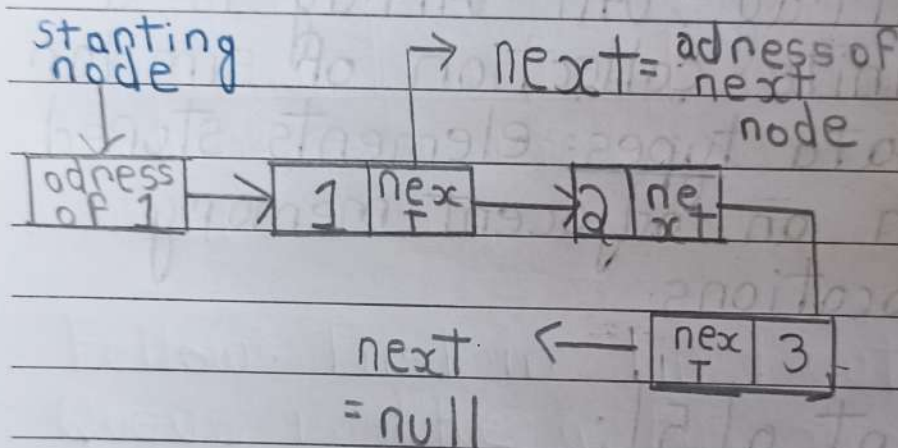 starting
node
next = adress of
next
node
adress
of 1
1
nex
T
2
ne
xt
nex
T
3
next
= null